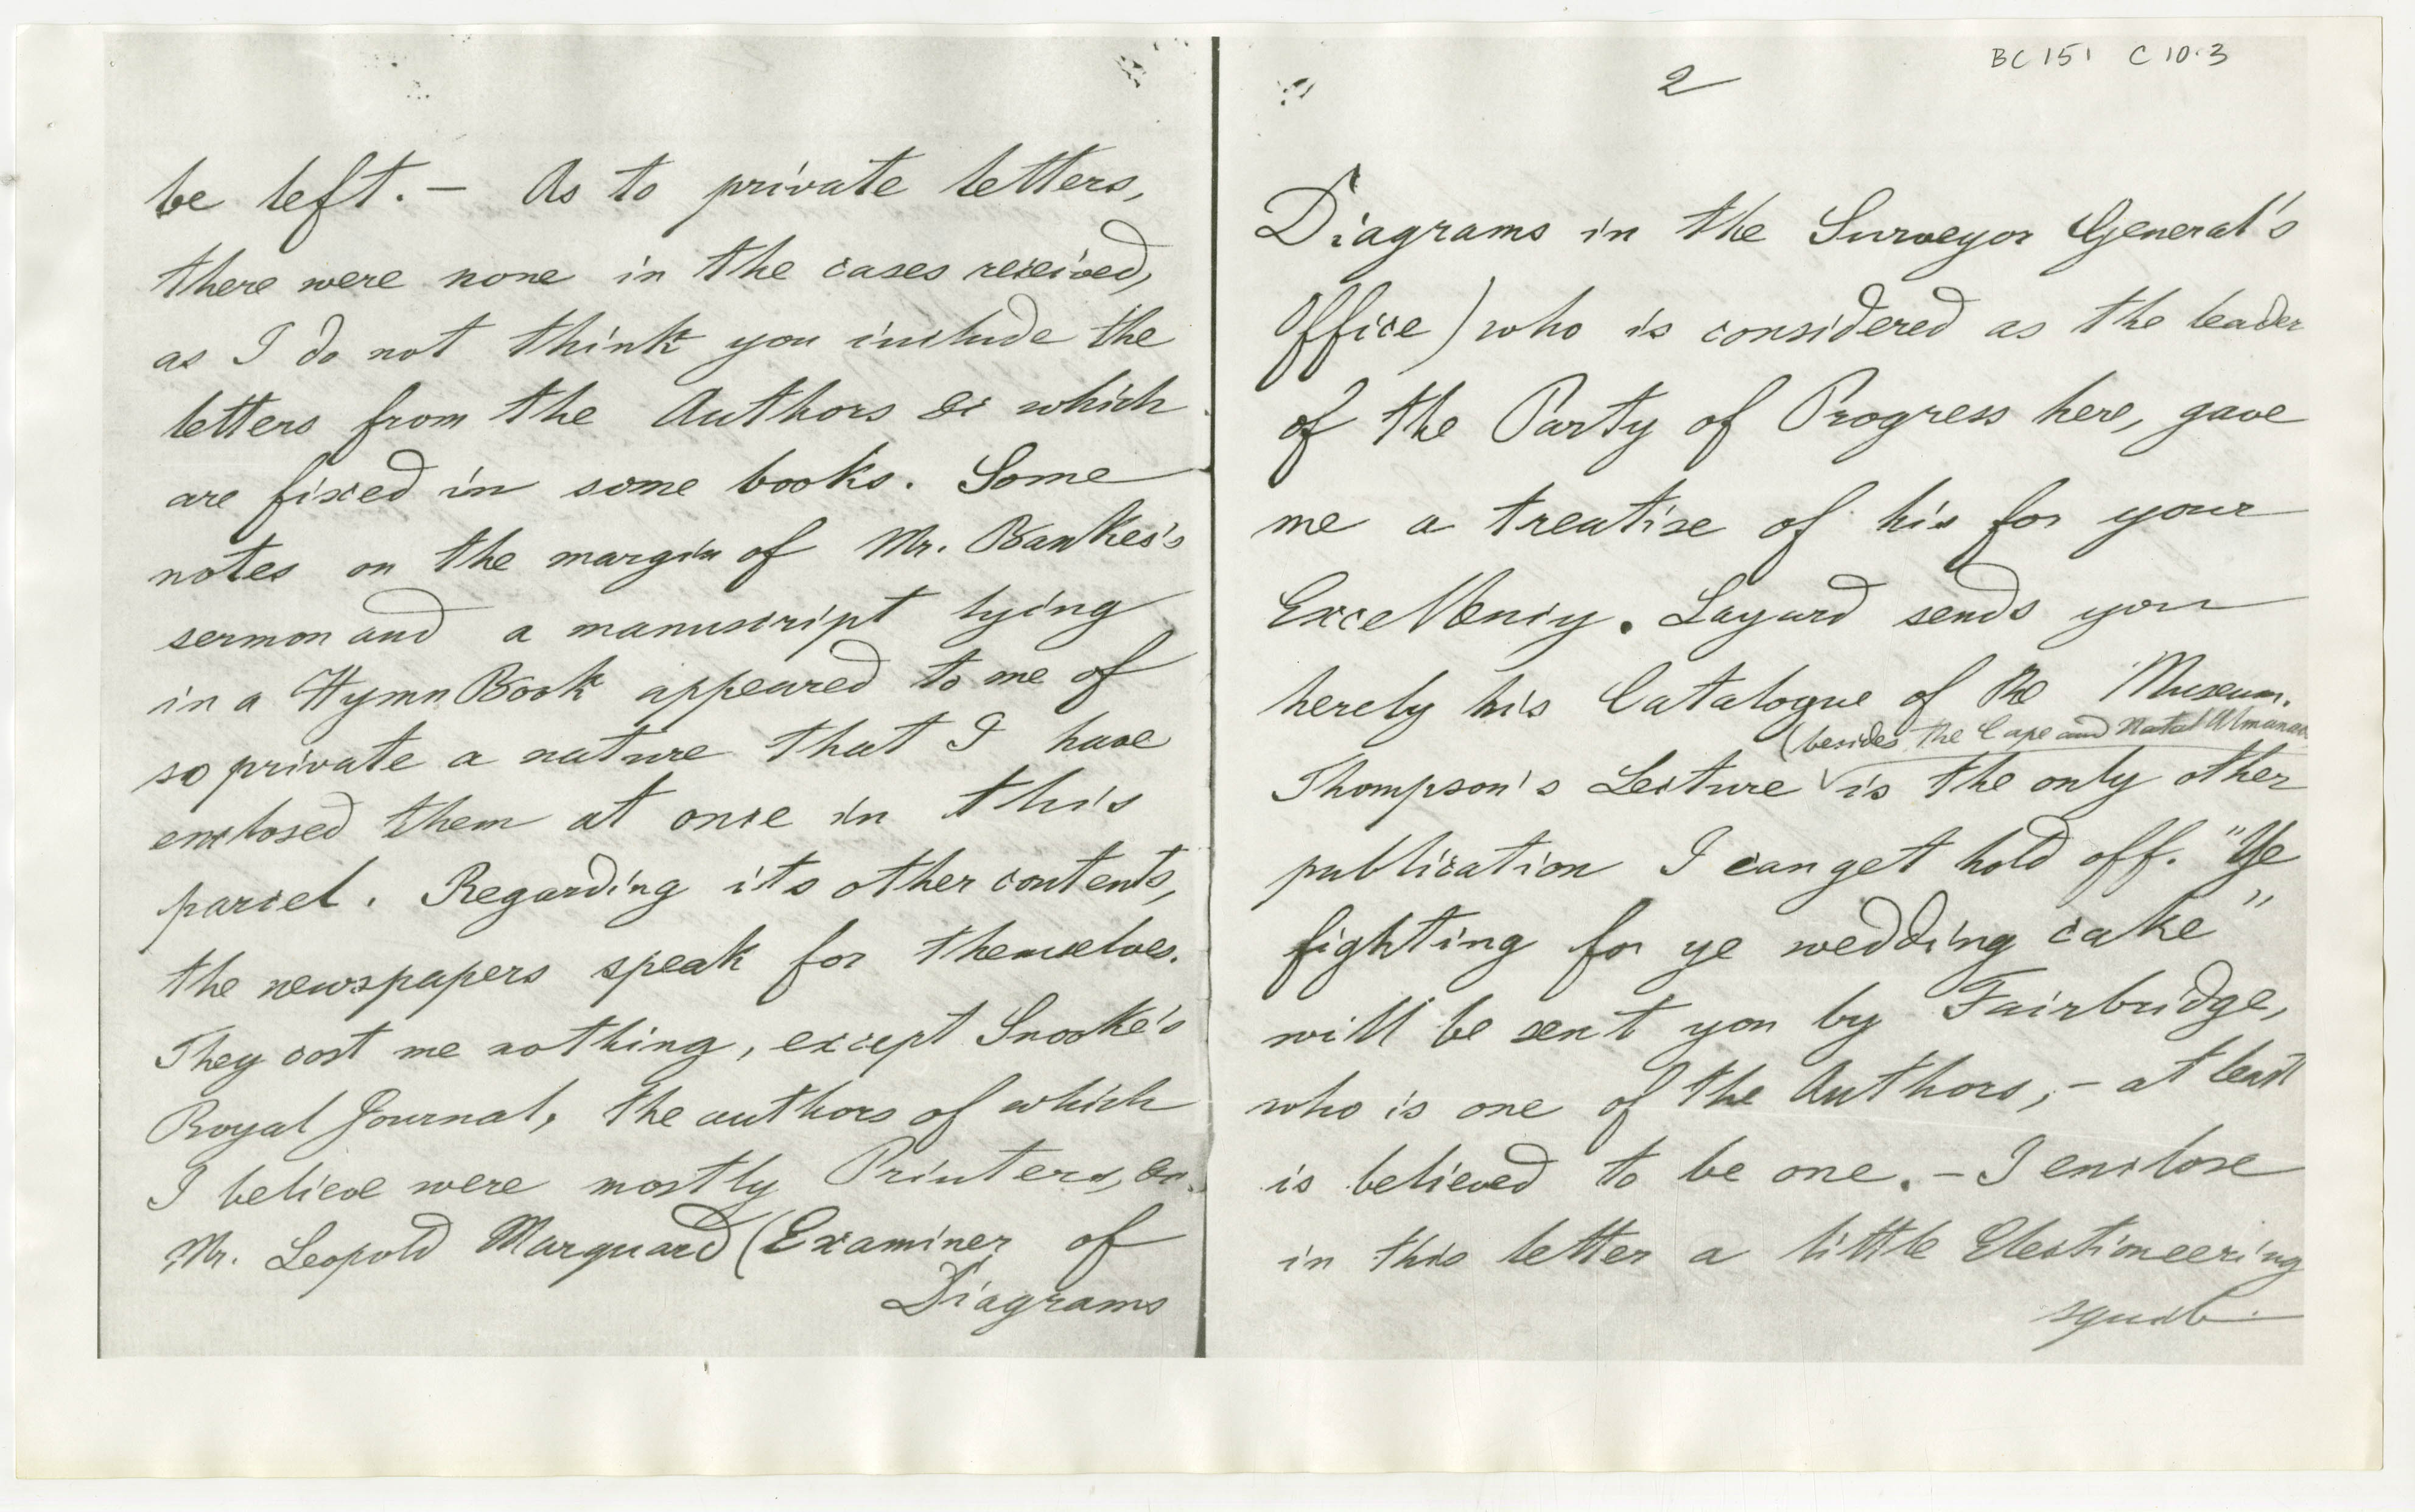 be left. – As to private letters,
there were none in the cases received,
as I do not think you include the
letters from the Authors &c which
are fixed in some books. Some
notes on the margin of Mr. Bankes's
sermon and a manuscript lying
in a Hymn Book appeared to me of
so private a nature that I have
enclosed them at once in this
parcel. Regarding its other contents,
the newspapers speak for themselves.
They cost me nothing, except Snooke's
Royal Journal, the authors of which
I believe were mostly Printers, &c.
Mr. Leopold Marquard (Examiner of
Diagrams
BC 151 C 10.3
2
Diagrams in the Surveyor General's
Office) who is considered as the leader
of the Party of Progress here, gave
me a treatise of his for your
Excellency. Layard sends you
hereby his Catalogue of the Museum.
(besides the Cape and Natal Almanac
Thompson's Lecture is the only other
publication I can get hold off. "Ye
fighting for ye wedding cake"
will be sent you by Fairbridge,
who is one of the Authors, – at least
is believed to be one. – I enclose
in this letter a little Electioneering
squib